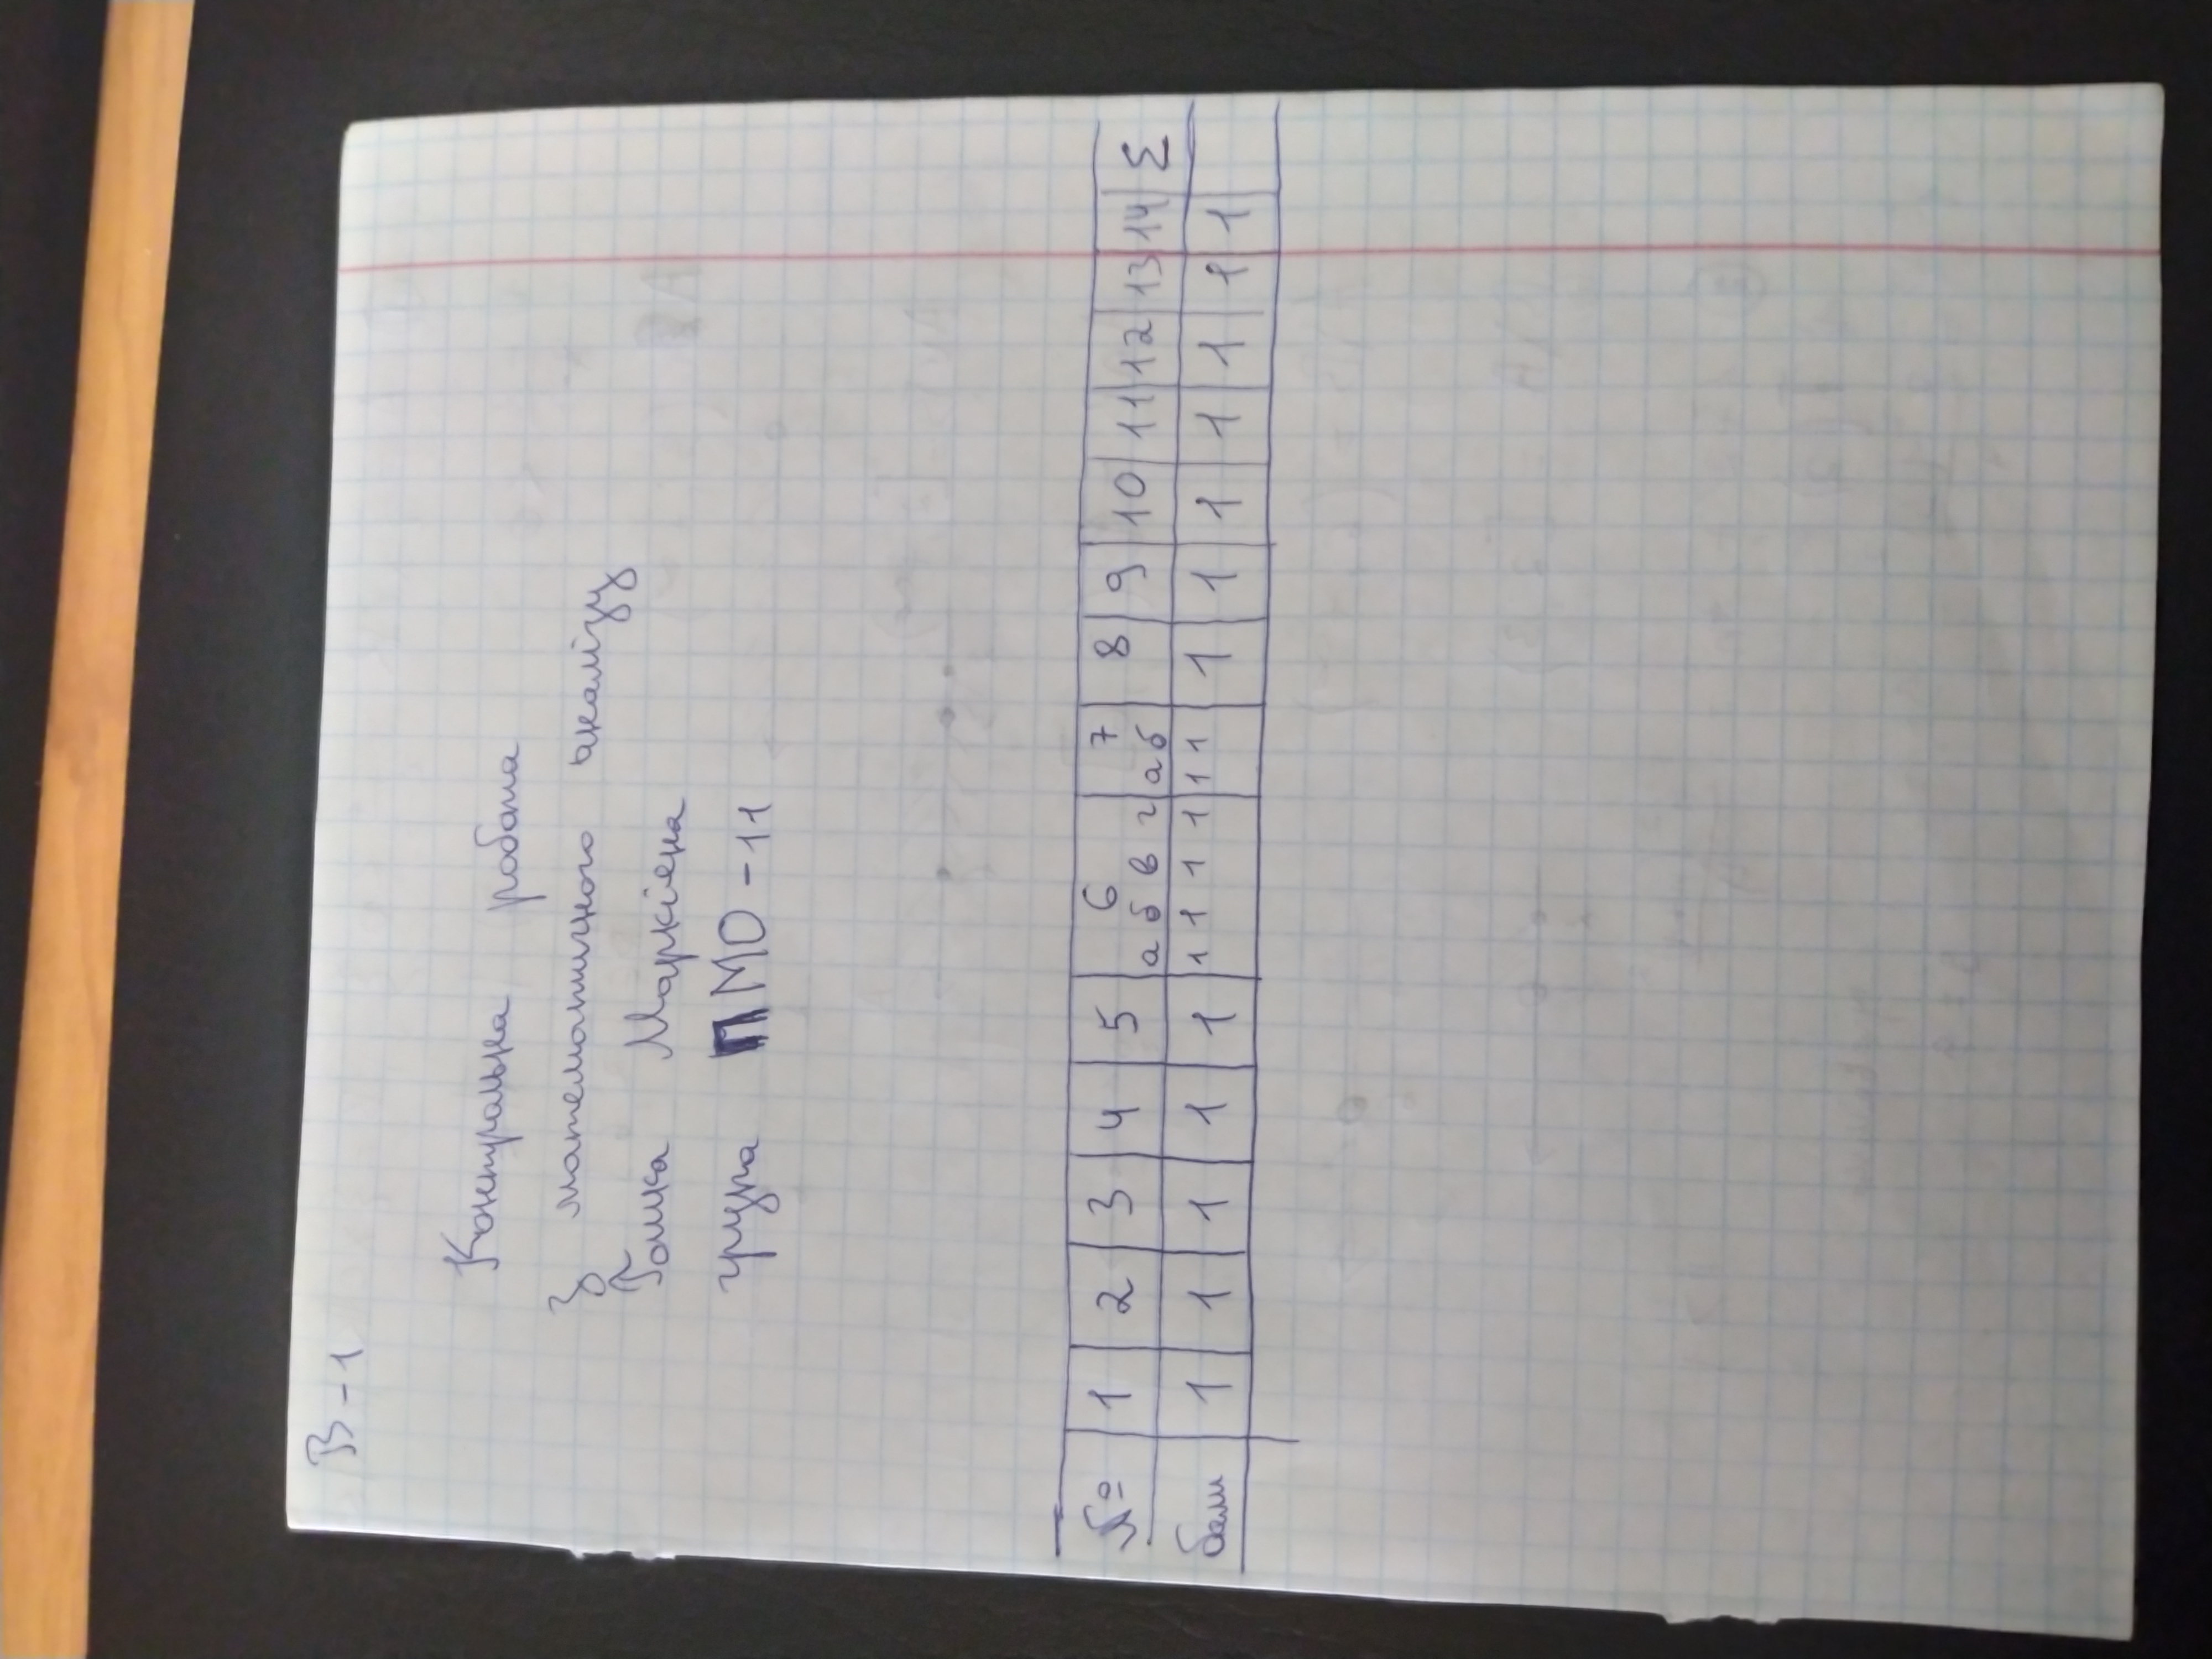 В-1
Контрольна робота
з математичного аналізу
Гошка Маркіяна
група ПМО-11
№ 1 2 3 4 5 6 7 8 9 10 11 12 13 14 Σ
а б в г а б
бали 1 1 1 1 1 1 1 1 1 1 1 1 1 1 1 1 1 1